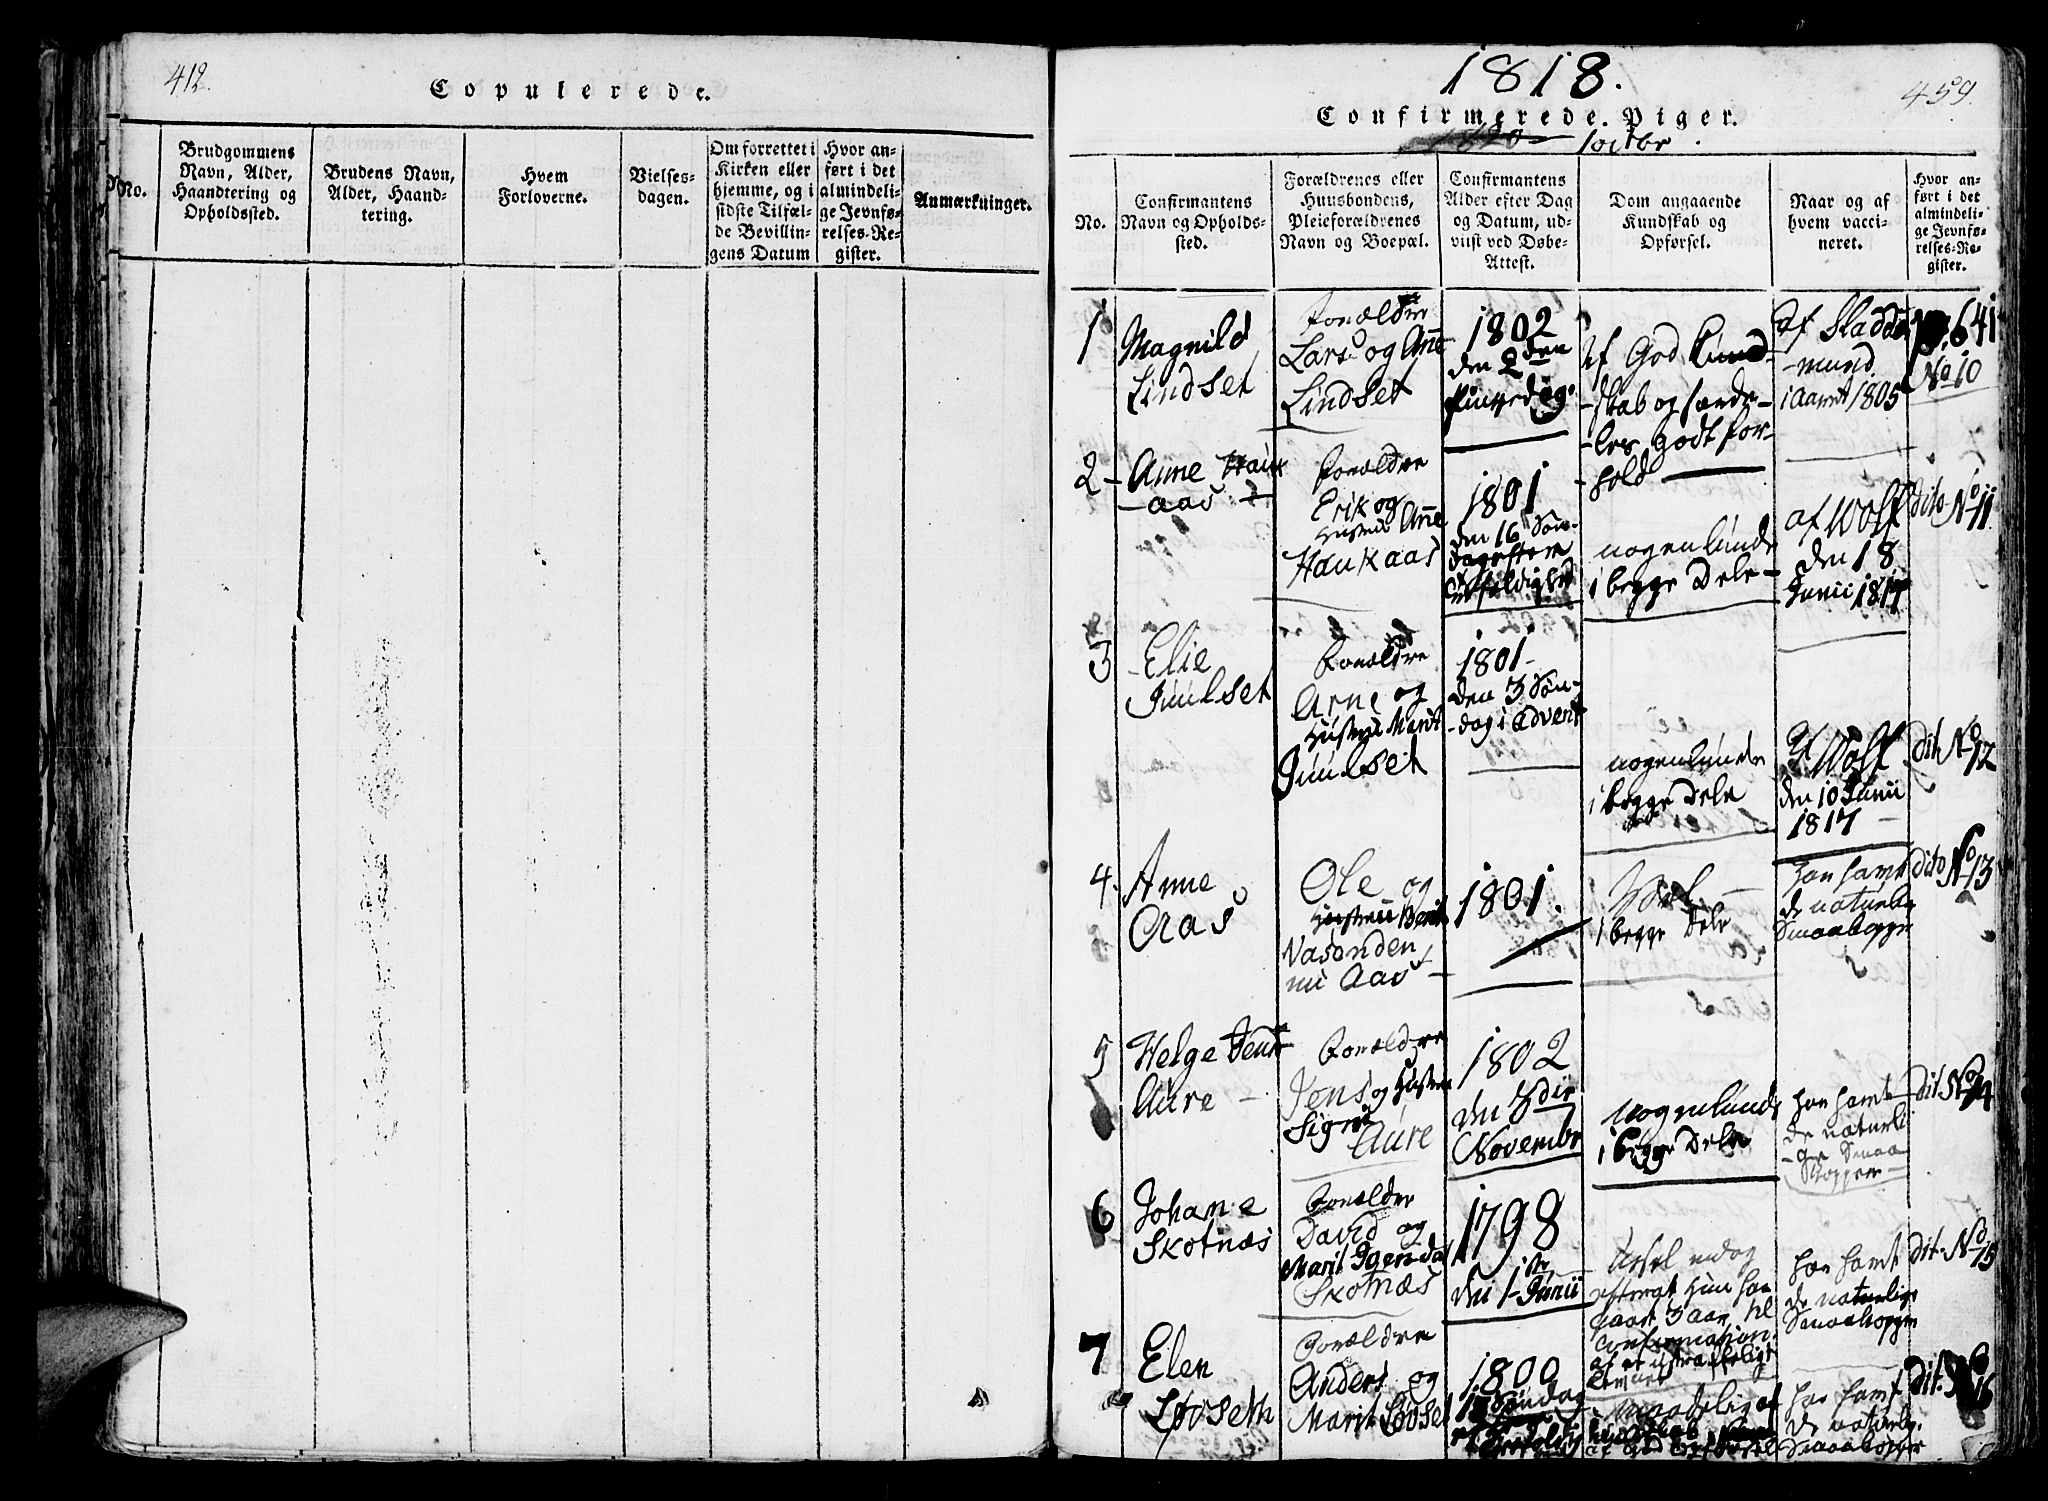 412.
Copulerede.
No.
Brudgommens
Navn, Alder,
Haandtering og
Opholdssted.
Brudens Navn,
Alder, Haand-
tering.
Hvem
Forloverne.
Vielses-
dagen.
Om forrettet i
Kirken eller
hjemme, og i
sidste Tilfæl-
de Bevillin-
gens Datum
Hvor an-
ført i det
almindeli-
ge Jevnfø-
relses-Re-
gister.
Anmærkninger.
1818.
459.
Confirmerede. Piger.
No.
Confirmantens
Navn og Opholds-
sted.
Forældrenes eller
Huusbondens,
Pleieforældrenes
Navn og Boepæl.
Confirmantens
Alder efter Dag
og Datum, ud-
viist ved Døbe-
Attest.
Dom angaaende
Kundskab og
Opførsel.
Naar og af
hvem vacci-
neret.
Hvor an-
ført i det
almindeli-
ge Jevnfø-
relses-Re-
gister.
1
Magnild
Lindset
Forældre
Lars og Ane
Lindset
1802
den 2den
Pintzedag.
af God Kund-
-skab og særde-
-les godt for-
-hold
af Stadds-
-mand
i aaret 1805
p. 641
No 10
2 -
Anne Hauk
-aas
Forældre
Erik og
Hustru Ane
Haukaas
1801
den 16 Søn-
dag efter
Trefoldighed
nogenlunde
i begge Dele -
af Wolf
den 18
Junii 1817
dito No 11
3
Elie
Juulset
Forældre
Arne og
Hustru Marit
Juulset
1801 -
den 3 Søn-
-dag i Advent
nogenlunde
i begge Dele
af Wolf
den 10 Junii
1817 -
dit No 12
4.
Anne
Aas
Ole og
Hustru Berit
Vasenden
nu Aas -
1801.
Vel -
i begge Dele
har havt
de naturlige
Smaakopper
dito No 13
5
Helge Jens
Aure -
Forældre
Jens og Hustru
Sigrid
Aure
1802
November
nogenlunde
i begge Dele
har havt
de naturli
-ge Smaa
Kopper -
dit No 14
6
Johane
Skotnæs
Forældre
David og
Marit
Skotnæs
1798
den 1ste Junii
Ussel
Hun har
gaaet 3 aar til
Confirmation
har havt
de naturlige
Smaakopper
dit No 15
7
Elen
Løvseth
Forældre
Anders og
Marit Løvset
1800
Søndag
maadelig af
Kundskab
af god Opførsel
har havt
de naturlige
Smaakopper
dit. No 16